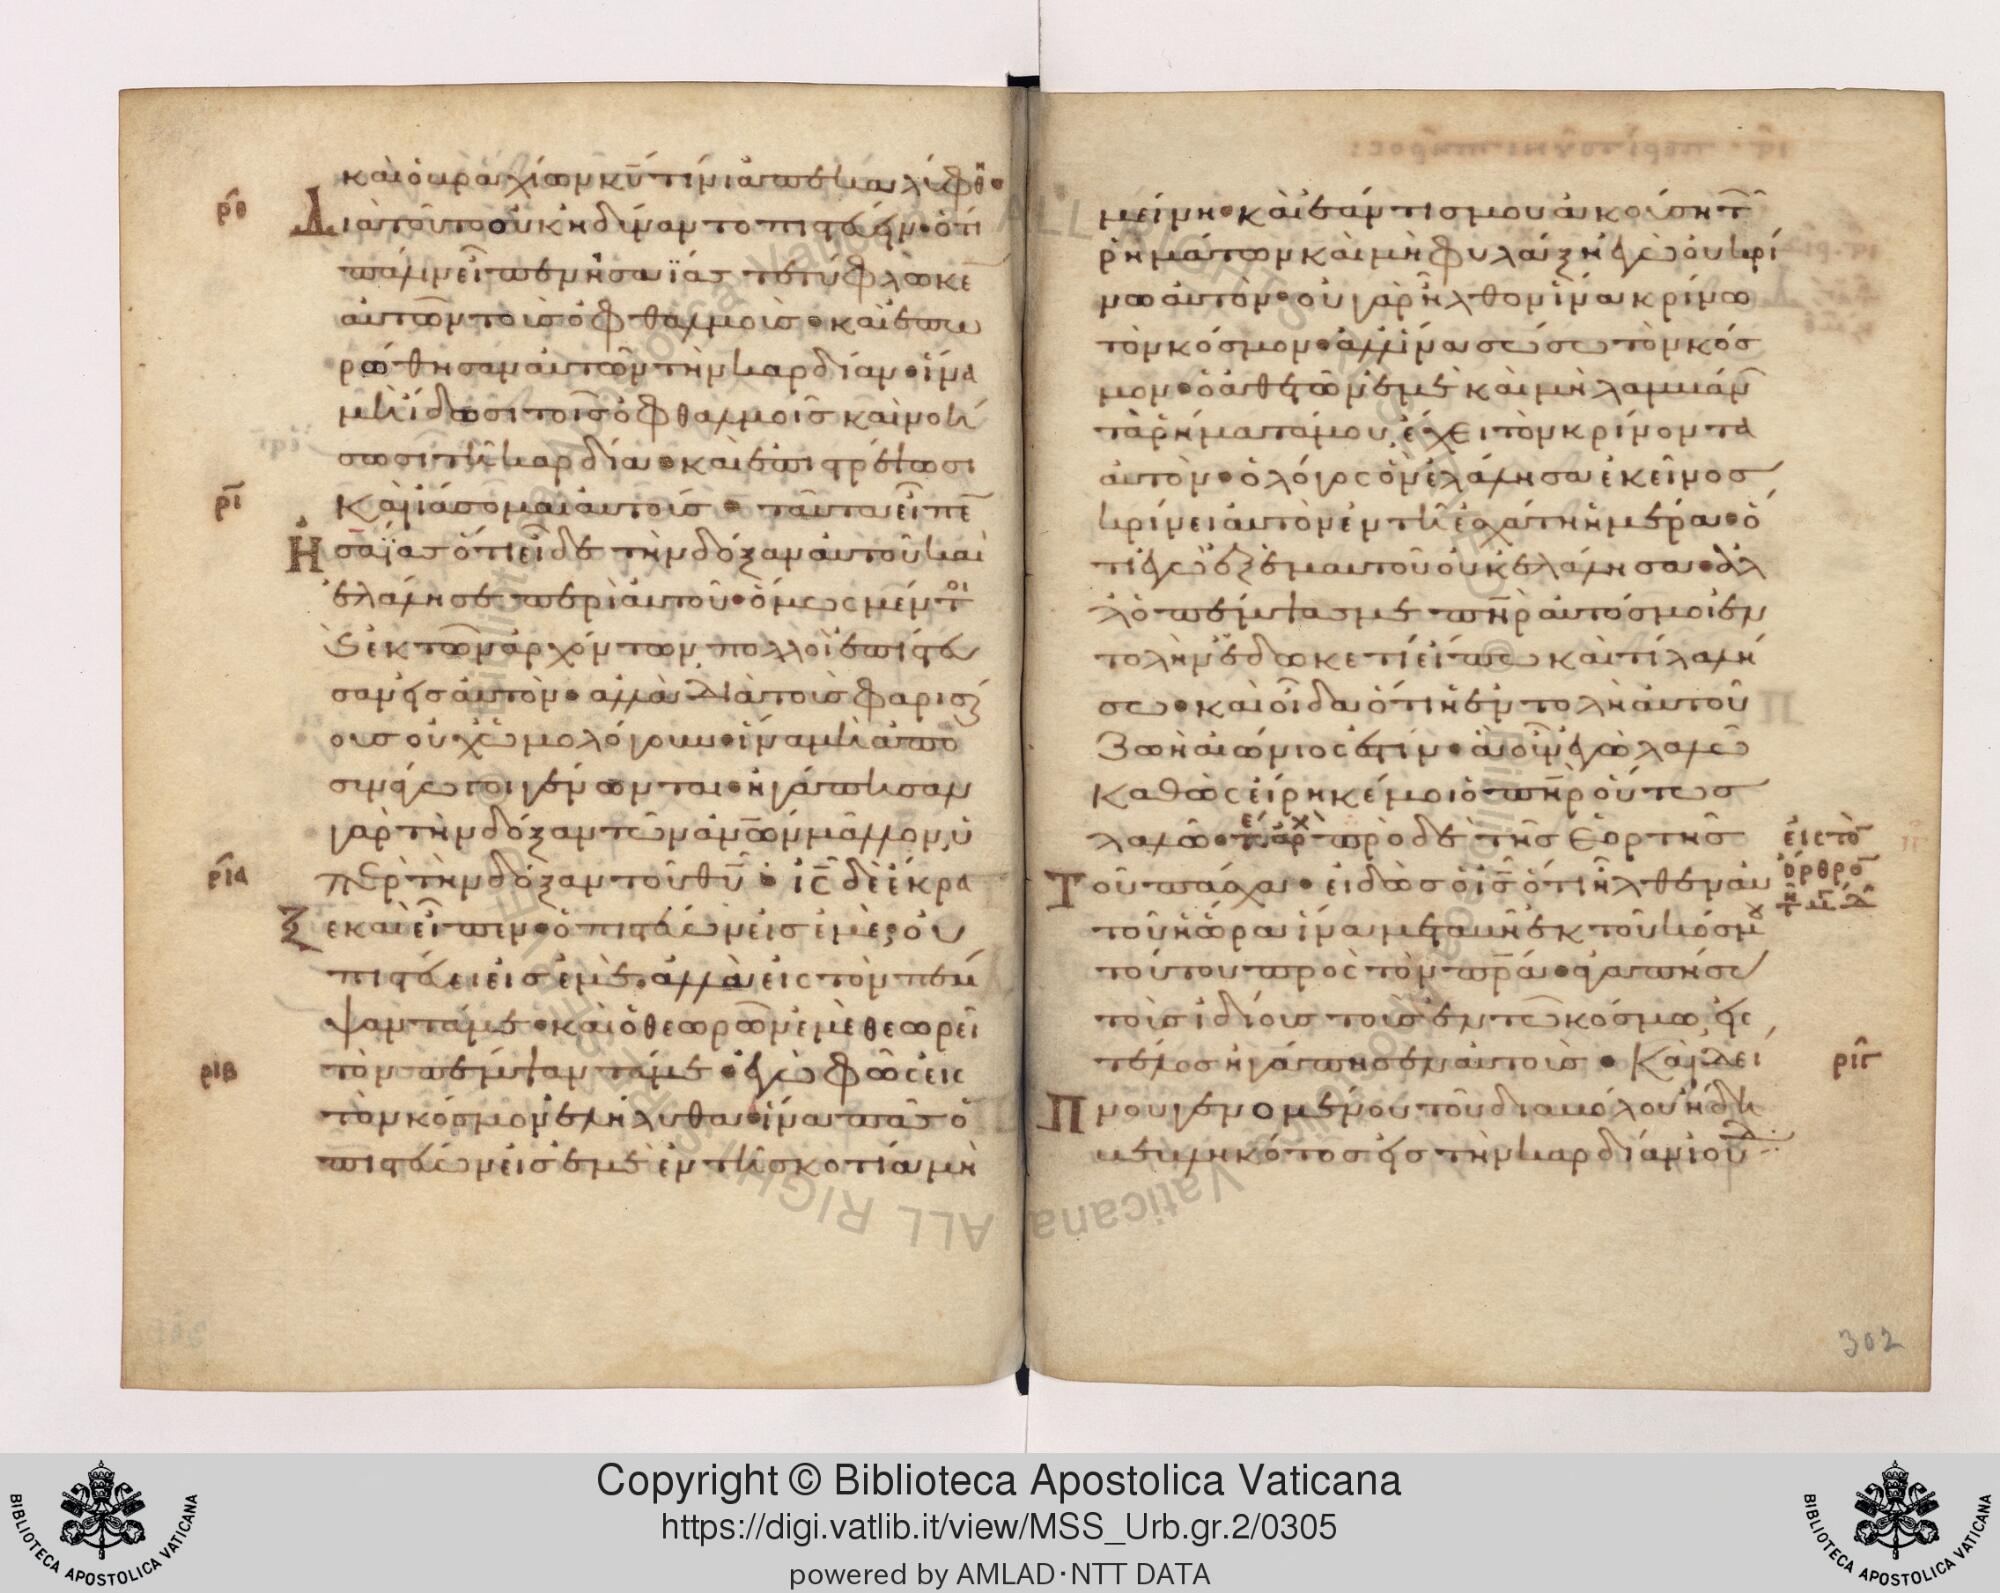 καὶ ὁ βραχίων κ̅υ̅ τίνι ἀπεκαλύφθη·
ρθ
Διατοῦτο οὐκ ἠδύναντο πιστεύειν· ὅτι
πάλιν εἶπεν ἡσαΐας τετύφλωκε
αὐτῶν τοὺς ὀφθαλμοὺς· καὶ ἐπω
ρώθησαν αὐτῶν τὴν καρδίαν· ἵνα
μὴ ἴδωσι τοῖς ὀφθαλμοῖς καὶ νοή
σωσι τῆ καρδία· καὶ ἐπιστρέψωσι
ρι
Καὶ ἰάσομαι αὐτοὺς· ταῦτα εἶπε
Ησαΐας ὅτι εἶδε τὴν δόξαν αὐτοῦ καὶ
ἐλάλησε περὶ αὐτοῦ· ὅμως μέντοι
καὶ ἐκ τῶν ἀρχόντων πολλοὶ ἐπίστευ
σαν εἰς αὐτὸν· ἀλλὰ διὰ τοὺς φαρισαί
ους οὐχ ὡμολόγουν· ἵνα μὴ ἀπο
συνάγωγοι γένωνται· ἠγάπησαν
γὰρ τὴν δόξαν τῶν ἀν̅ω̅ν μᾶλλον, ὑ
ρια
περ τὴν δόξαν τοῦ θ̅υ̅· ι̅ς̅ δὲ ἔκρα
ξε καὶ εἶπεν· ὁ πιστεύων εἰς ἐμὲ, οὐ
πιστεύει εἰς ἐμὲ, ἀλλὰ εἰς τὸν πέμ
ψαντά με· καὶ ὁ θεωρῶν ἐμὲ θεωρεῖ
ριβ
τὸν πέμψαντά με· ἐγὼ φῶς εἰς
τὸν κόσμον ἐλήλυθα· ἵνα πᾶς ὁ
πιστεύων εἰς ἐμὲ ἐν τῆ σκοτία μὴ
μείνη· καὶ ἐάν τις μου ἀκούση τῶν
ῥημάτων καὶ μὴ φυλάξη ἐγὼ οὐ κρί
νω αὐτὸν· οὐ γὰρ ἦλθον ἵνα κρίνω
τὸν κόσμον· ἀλλ ἵνα σώσω τὸν κόσ
μον· ὁ ἀθετῶν ἐμὲ καὶ μὴ λαμβάνων
τὰ ῥήματά μου, ἔχει τὸν κρίνοντα
αὐτὸν· ὁ λόγος ὃν ἐλάλησα ἐκεῖνος
κρίνει αὐτὸν ἐν τῆ ἐσχάτη ἡμέρα· ὅ
τι ἐγὼ ἐξ ἐμαυτοῦ οὐκ ἐλάλησα· ἀλ
λ ὁ πέμψας με π̅η̅ρ αὐτός μοι ἐν
τολὴν ἔδωκε τί εἴπω καὶ τί λαλή
σω· καὶ οἶδα ὅτι ἡ ἐντολὴ αὐτοῦ
ζωὴ αἰώνιος ἐστίν· ἃ οὖν ἐγὼ λαλῶ
καθὼς εἴρηκέ μοι ὁ π̅η̅ρ οὕτως
λαλῶ· πρὸ δὲ τῆς ἑορτῆς
εἰς τὸ
ὄρθρο
Τοῦ πάσχα· εἰδὼς ὁ ι̅ς̅ ὅτι ἦλθεν αὐ
τοῦ ἡ ὥρα ἵνα μεταβῆ ἐκ τοῦ κόσμου
τούτου πρὸς τὸν π̅ρ̅α· ἀγαπήσας
τοὺς ἰδίους τοὺς ἐν τῶ κόσμω, εἰς
τέλος ἠγάπησεν αὐτοὺς· Καὶ δεί
ριγ
Πνου γενομένου τοῦ διαβόλου ἤδη
βεβληκότος εἰς τὴν καρδίαν ἰού
302
Copyright © Biblioteca Apostolica Vaticana
https://digi.vatlib.it/view/MSS_Urb.gr.2/0305
powered by AMLAD·NTT DATA
BIBLIOTECA APOSTOLICA VATICANA
BIBLIOTECA APOSTOLICA VATICANA